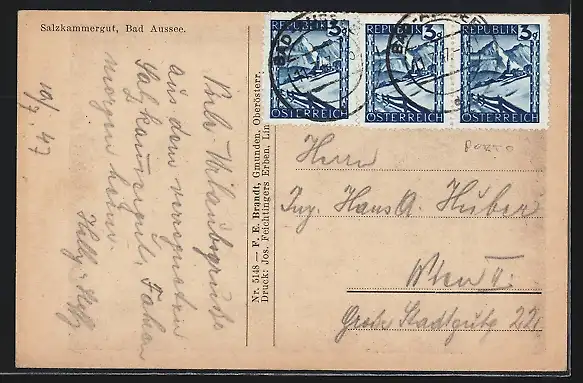 Salzkammergut, Bad Aussee.
19/7. 47
Viele Urlaubsgrüße
aus dem verregneten
Salzkammergut. Fahren
morgen heim.
Nr. 5148 — F. E. Brandt, Gmunden, Oberösterr.
Druck: Jos. Feichtingers Erben, Lin
REPUBLIK 3g
ÖSTERREICH
REPUBLIK 3g
ÖSTERREICH
REPUBLIK 3g
ÖSTERREICH
BAD AUSSEE
PORTO
Herrn
Ing. Hans A. Huber
Wien II.
Große Stadtgutg. 22